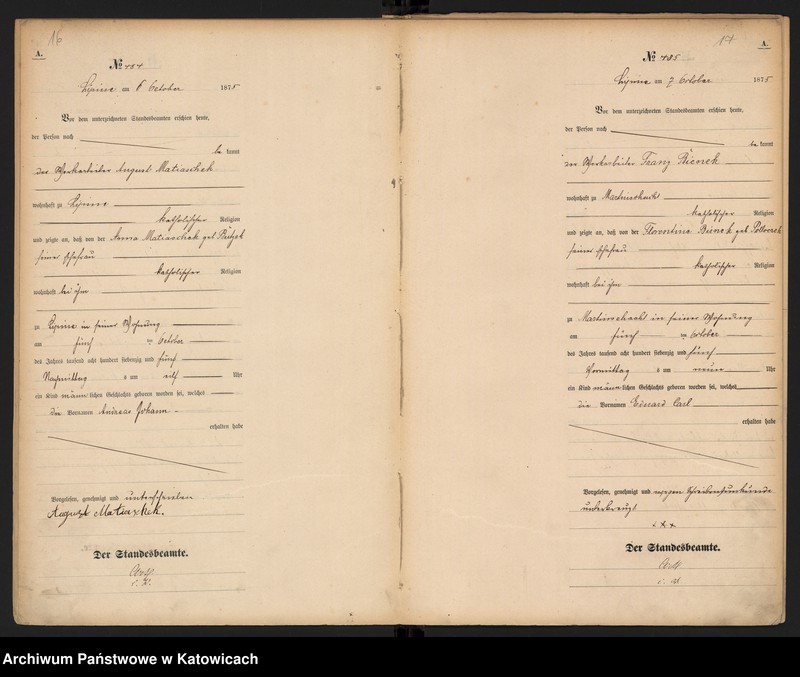 16
A.
№ 484
Lipine am 6 October 1875
Vor dem unterzeichneten Standesbeamten erschien heute,
der Person nach
be kannt
der Werkarbeiter August Matiaschek
wohnhaft zu Lipine
katholischer Religion
und zeigte an, daß von der Anna Matiaschek geb
seiner Ehefrau
katholischer Religion
wohnhaft bei ihm
zu Lipine in seiner Wohnung
am fünf ten October
des Jahres tausend acht hundert siebenzig und fünf
Nachmittag s um Uhr
ein Kind männ lichen Geschlechts geboren worden sei, welches
die Vornamen Andreas Johann
erhalten habe
Vorgelesen, genehmigt und unterschrieben
August Matiaschek.
Der Standesbeamte.
17
A.
№ 485
Lipine am 7 October 1875
Vor dem unterzeichneten Standesbeamten erschien heute,
der Person nach
be kannt
der Werkarbeiter Franz Bienek
wohnhaft zu Martinschacht
katholischer Religion
und zeigte an, daß von der Florentine Bienek geb
seiner Ehefrau
katholischer Religion
wohnhaft bei ihm
zu Martinschacht in seiner Wohnung
am fünf ten October
des Jahres tausend acht hundert siebenzig und fünf
Vormittag s um neun Uhr
ein Kind männ lichen Geschlechts geboren worden sei, welches
die Vornamen Eduard Carl
erhalten habe
Vorgelesen, genehmigt und wegen Schreibensunkunde
unterkreuzt
xxx
Der Standesbeamte.
Archiwum Państwowe w Katowicach